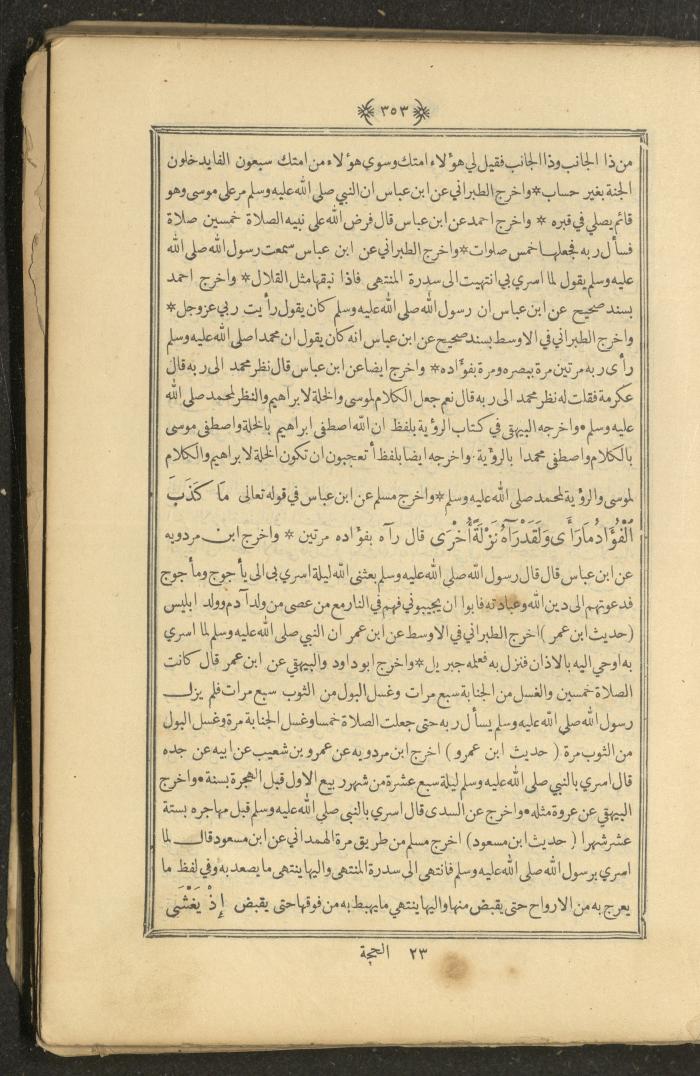 ٣٥٣
من ذا الجانب وذا الجانب فقيل لي هؤلاء امتك وسوى هؤلاء من امتك سبعون الفا يدخلون
الجنة بغير حساب * واخرج الطبراني عن ابن عباس ان النبي صلى الله عليه وسلم مر على موسى وهو
قائم يصلي في قبره * واخرج احمد عن ابن عباس قال فرض الله على نبيه الصلاة خمسين صلاة
فسأل ربه فجعلها خمس صلوات * واخرج الطبراني عن ابن عباس سمعت رسول الله صلى الله
عليه وسلم يقول لما اسري بي انتهيت الى سدرة المنتهى فاذا نبقها مثل القلال * واخرج احمد
بسند صحيح عن ابن عباس ان رسول الله صلى الله عليه وسلم كان يقول رأيت ربي عز وجل *
واخرج الطبراني في الاوسط بسند صحيح عن ابن عباس انه كان يقول ان محمدا صلى الله عليه وسلم
رأى ربه مرتين مرة ببصره ومرة بفؤاده * واخرج ايضا عن ابن عباس قال نظر محمد الى ربه قال
عكرمة فقلت له نظر محمد الى ربه قال نعم جعل الكلام لموسى والخلة لابراهيم والنظر لمحمد صلى الله
عليه وسلم * واخرجه البيهقي في كتاب الرؤية بلفظ ان الله اصطفى ابراهيم بالخلة واصطفى موسى
بالكلام واصطفى محمدا بالرؤية * واخرجه ايضا بلفظ أتعجبون ان تكون الخلة لابراهيم والكلام
لموسى والرؤية لمحمد صلى الله عليه وسلم * واخرج مسلم عن ابن عباس في قوله تعالى مَا كَذَبَ
ٱلْفُؤَادُ مَا رَأَى وَلَقَدْ رَآهُ نَزْلَةً أُخْرَى قال رآه بفؤاده مرتين * واخرج ابن مردويه
عن ابن عباس قال قال رسول الله صلى الله عليه وسلم بعثني الله ليلة اسري بي الى يأجوج ومأجوج
فدعوتهم الى دين الله وعبادته فابوا ان يجيبوني فهم في النار مع من عصى من ولد آدم وولد ابليس
(حديث ابن عمر) اخرج الطبراني في الاوسط عن ابن عمر ان النبي صلى الله عليه وسلم لما اسري
به اوحي اليه بالاذان فنزل به فعلمه جبريل * واخرج ابو داود والبيهقي عن ابن عمر قال كانت
الصلاة خمسين والغسل من الجنابة سبع مرات وغسل البول من الثوب سبع مرات فلم يزل
رسول الله صلى الله عليه وسلم يسأل ربه حتى جعلت الصلاة خمسا وغسل الجنابة مرة وغسل البول
من الثوب مرة (حديث ابن عمرو) اخرج ابن مردويه عن عمرو بن شعيب عن ابيه عن جده
قال اسري بالنبي صلى الله عليه وسلم ليلة سبع عشرة من شهر ربيع الاول قبل الهجرة بسنة * واخرج
البيهقي عن عروة مثله * واخرج عن السدى قال اسري بالنبي صلى الله عليه وسلم قبل مهاجره بستة
عشر شهرا (حديث ابن مسعود) اخرج مسلم من طريق مرة الهمداني عن ابن مسعود قال لما
اسري برسول الله صلى الله عليه وسلم فانتهى الى سدرة المنتهى واليها ينتهى ما يصعد به وفي لفظ ما
يعرج به من الارواح حتى يقبض منها واليها ينتهي ما يهبط به من فوقها حتى يقبض إِذْ يَغْشَى
٢٣ الحجة